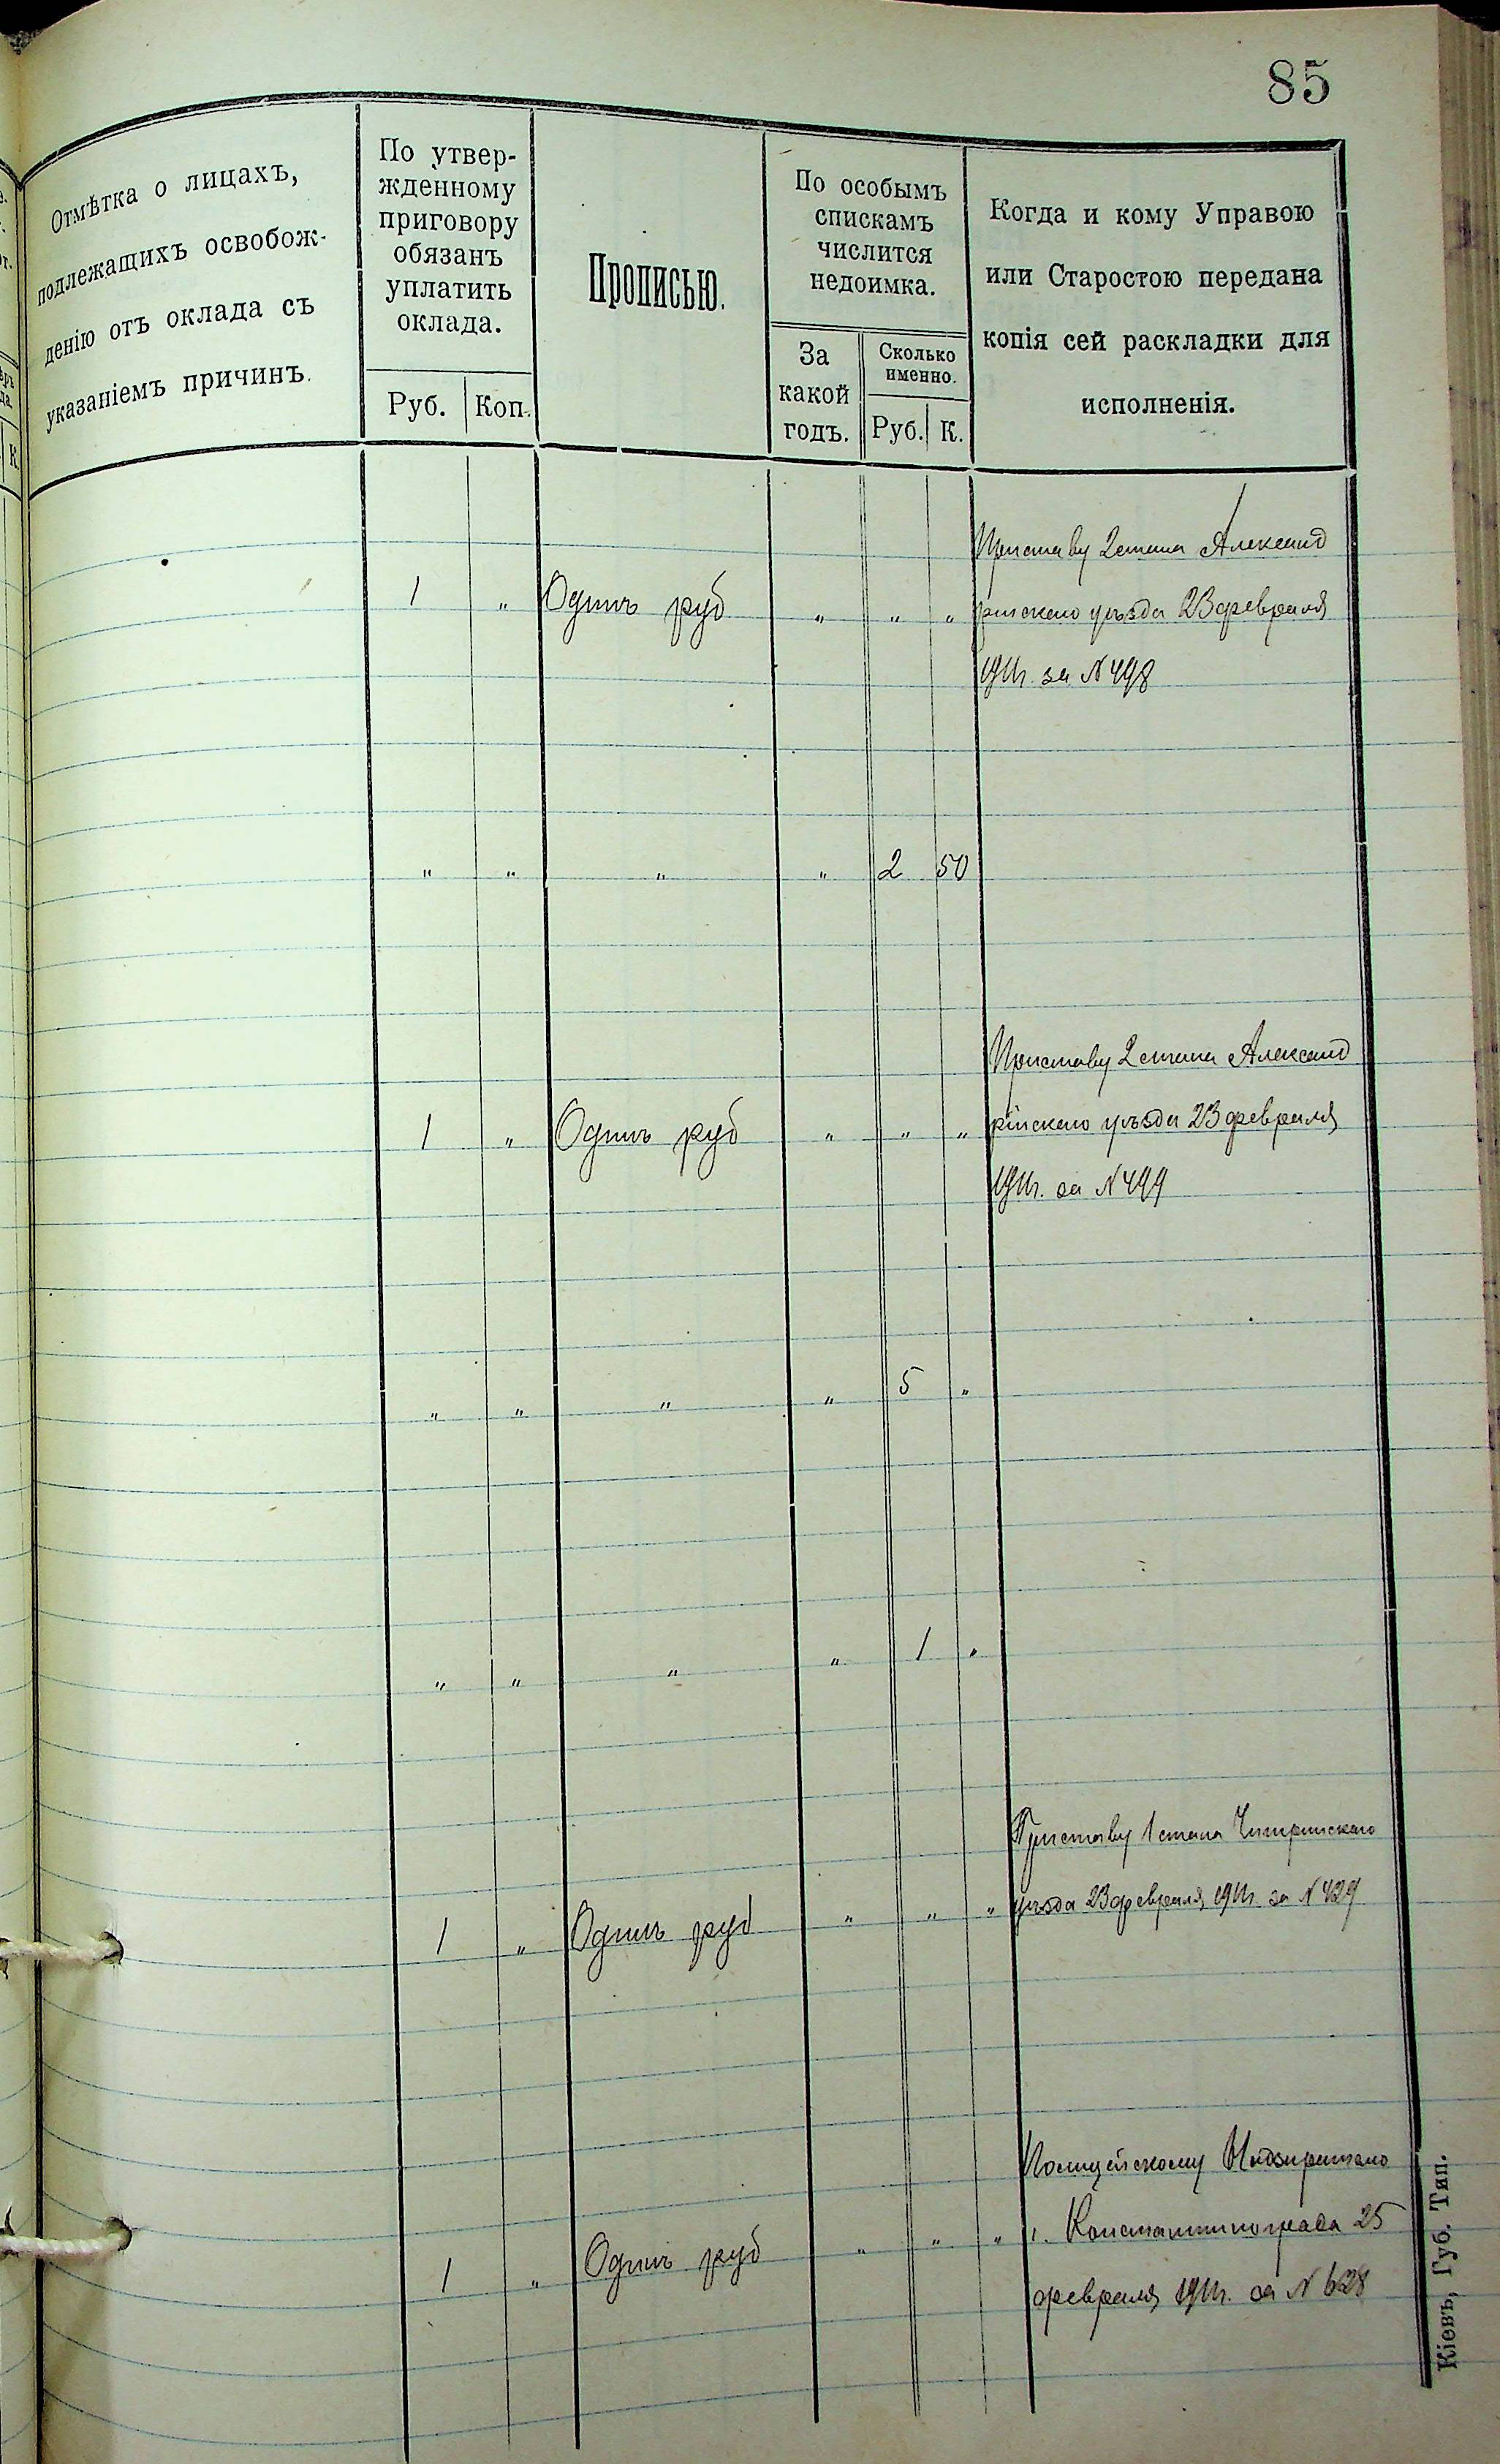 85
Отмѣтка о лицахъ,
подлежащихъ освобож-
денію отъ оклада съ
указаніемъ причинъ.
По утвер-
жденному
приговору
обязанъ
уплатить
оклада.
Руб. Коп.
Прописью.
По особымъ
спискамъ
числится
недоимка.
За
какой
годъ.
Сколько
именно.
Руб. К.
Когда и кому Управою
или Старостою передана
копія сей раскладки для
исполненія.
Приставу 2 стана Александ
1 " Одинъ руб " " " рійскаго уѣзда 23 февраля
1911г. за № 498
" " " " 2 50
Приставу 2 стана Александ
1 " Одинъ руб " " " рійскаго уѣзда 23 февраля
1911г. за № 499
" " " " 5 "
" " " " 1 "
Приставу 1 стана Чигиринскаго
1 " Одинъ руб " " " уѣзда 23 февраля 1911г. за № 429
Полицейскому Надзирателю
1 " Одинъ руб " " " г. Константинограда 25
февраля 1911г. за № 628
Кіевъ, Губ. Тип.